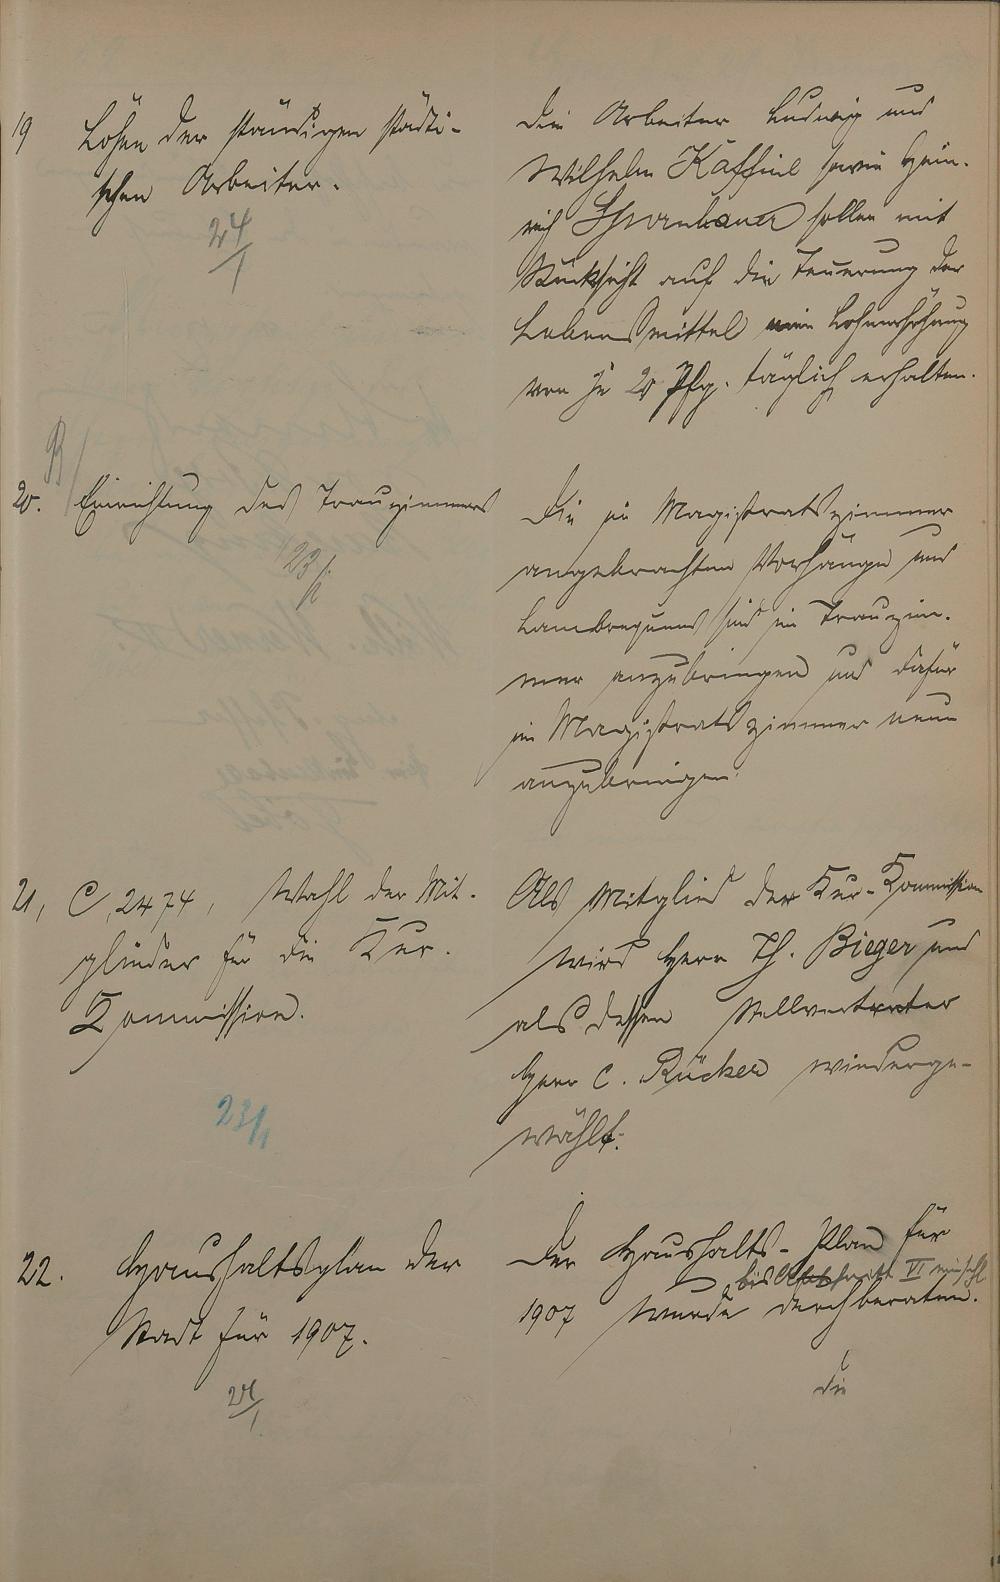 19 Löhne der ständigen städti-
schen Arbeiter.
24/1
Die Arbeiter Ludwig und
Wilhelm Kaffine sowie Hein-
rich sollen mit
Rücksicht auf die Teuerung der
Lebensmittel eine Lohnerhöhung
von je 20 Pfg. täglich erhalten.
B
20. Einrichtung des Trauzimmers
23/1
Die im Magistratszimmer
angebrachten Vorhänge und
Lambrequins sind im Trauzim-
mer anzubringen und dafür
im Magistratszimmer neue
anzubringen.
21, C, 2474, Wahl der Mit-
glieder für die Kur-
Kommission.
23/1
Als Mitglied der Kur-Kommission
wird Herr Th. Bieger und
als dessen Stellvertreter
Herr C. Rücker wiederge-
wählt.
22. Haushaltsplan der
Stadt für 1907.
24/1
Der Haushalts-Plan für
bis Abschnitt VI einschl
1907 wurde durchberaten.
Die